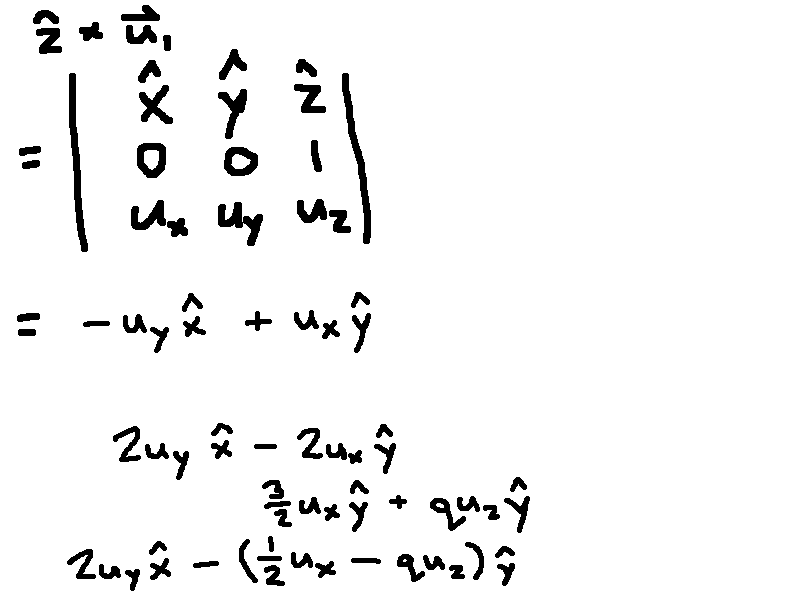 ẑ × u⃗₁
= | x̂ ŷ ẑ |
| 0 0 1 |
| uₓ u_y u_z |
= − u_y x̂ + uₓ ŷ
2u_y x̂ − 2uₓ ŷ
3/2 uₓ ŷ + q u_z ŷ
2u_y x̂ − (1/2 uₓ − q u_z) ŷ